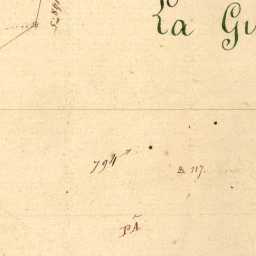 La Gu
794
117.
PÃ